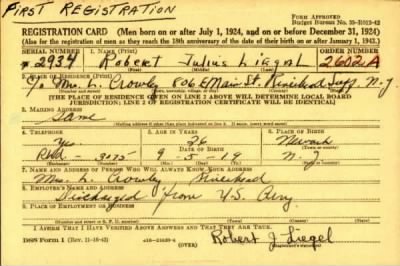 FIRST REGISTRATION
FORM APPROVED
Budget Bureau No. 33-R012-42
REGISTRATION CARD (Men born on or after July 1, 1924, and on or before December 31, 1924)
(Also for the registration of men as they reach the 18th anniversary of the date of their birth on or after January 1, 1943.)
SERIAL NUMBER 1. NAME (Print) ORDER NUMBER
2934 Robert Julius Liegel 2602A
2. PLACE OF RESIDENCE (Print)
℅ Mrs. L. Crowley Main St. N.Y.
[THE PLACE OF RESIDENCE GIVEN ON LINE 2 ABOVE WILL DETERMINE LOCAL BOARD
JURISDICTION; LINE 2 OF REGISTRATION CERTIFICATE WILL BE IDENTICAL]
3. MAILING ADDRESS
Same
4. TELEPHONE 5. AGE IN YEARS 6. PLACE OF BIRTH
Yes 26 Newark
DATE OF BIRTH
3075 9-5-19 N.J.
7. NAME AND ADDRESS OF PERSON WHO WILL ALWAYS KNOW YOUR ADDRESS
Mrs. L. Crowley
8. EMPLOYER'S NAME AND ADDRESS
Discharged from U.S. Army
9. PLACE OF EMPLOYMENT OR BUSINESS
I AFFIRM THAT I HAVE VERIFIED ABOVE ANSWERS AND THAT THEY ARE TRUE.
DSS Form 1 (Rev. 11-16-42) (OVER) Robert J. Liegel